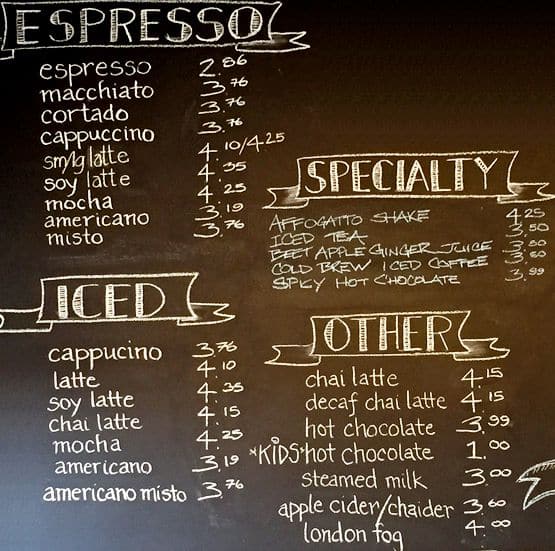 ESPRESSO
espresso 2.86
macchiato 3.76
cortado 3.76
cappuccino 3.76
sm/lg latte 4.10/4.25
soy latte 4.35
mocha 4.25
americano 3.19
misto 3.76
SPECIALTY
AFFOGATTO SHAKE 4.25
ICED TEA 3.50
BEET APPLE GINGER JUICE
COLD BREW ICED COFFEE
SPICY HOT CHOCOLATE 3.99
ICED
cappucino 3.76
latte 4.10
soy latte 4.35
chai latte 4.15
mocha 4.25
americano 3.19
americano misto 3.76
OTHER
chai latte 4.15
decaf chai latte 4.15
hot chocolate 3.99
*KIDS* hot chocolate 1.00
steamed milk 3.00
apple cider/chaider 3.60
london fog 4.00